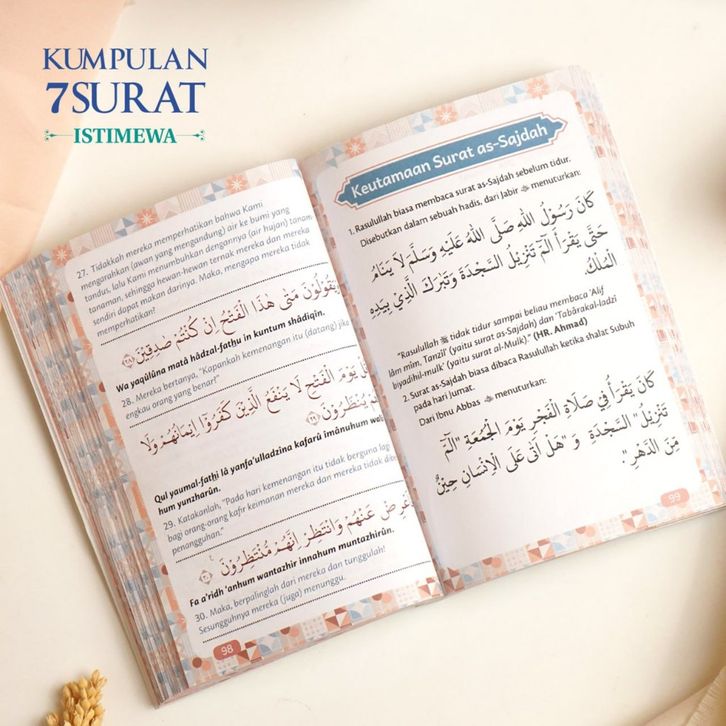 KUMPULAN
7SURAT
ISTIMEWA
27. Tidakkah mereka memperhatikan bahwa Kami
mengarahkan (awan yang mengandung) air ke bumi yang
tandus, lalu Kami menumbuhkan dengannya (air hujan) tanam
tanaman, sehingga hewan-hewan ternak mereka dan mereka
sendiri dapat makan darinya. Maka, mengapa mereka tidak
memperhatikan?
وَيَقُوْلُوْنَ مَتٰى هٰذَا الْفَتْحُ اِنْ كُنْتُمْ صٰدِقِيْنَ ﴿٢٨﴾
Wa yaqûlûna matâ hâdzal-fatḥu in kuntum shâdiqîn.
28. Mereka bertanya, "Kapankah kemenangan itu (datang) jika
engkau orang yang benar?"
يَوْمَ الْفَتْحِ لَا يَنْفَعُ الَّذِيْنَ كَفَرُوْٓا اِيْمَانُهُمْ وَلَا
يُنْظَرُوْنَ ﴿٢٩﴾
Qul yaumal-fatḥi lâ yanfa'ulladzîna kafarû îmânuhum wa
hum yunzharûn.
29. Katakanlah, "Pada hari kemenangan itu tidak berguna lagi
bagi orang-orang kafir keimanan mereka dan mereka tidak di
penangguhan."
عَنْهُمْ وَانْتَظِرْ اِنَّهُمْ مُّنْتَظِرُوْنَ ﴿٣٠﴾
Fa a'ridh 'anhum wantazhir innahum muntazhirûn.
30. Maka, berpalinglah dari mereka dan tunggulah!
Sesungguhnya mereka (juga) menunggu.
98
Keutamaan Surat as-Sajdah
1. Rasulullah biasa membaca surat as-Sajdah sebelum tidur.
Disebutkan dalam sebuah hadis, dari Jabir menuturkan:
كَانَ رَسُوْلُ اللهِ صَلَّى اللهُ عَلَيْهِ وَسَلَّمَ لَا يَنَامُ
حَتَّى يَقْرَأَ الٓمّٓ تَنْزِيْلُ السَّجْدَةَ وَتَبَرَكَ الَّذِيْ بِيَدِهِ
الْمُلْكُ.
"Rasulullah ﷺ tidak tidur sampai beliau membaca 'Alif
lâm mîm, Tanzîl' (yaitu surat as-Sajdah) dan 'Tabârakal-ladzî
biyadihil-mulk' (yaitu surat al-Mulk)." (HR. Ahmad)
2. Surat as-Sajdah biasa dibaca Rasulullah ketika shalat Subuh
pada hari Jumat.
Dari Ibnu Abbas menuturkan:
كَانَ يَقْرَأُ فِي صَلَاةِ الْفَجْرِ يَوْمَ الْجُمُعَةِ "الٓمّٓ
تَنْزِيْلُ" السَّجْدَةِ وَ "هَلْ أَتَى عَلَى الْاِنْسَانِ حِيْنٌ
مِنَ الدَّهْرِ".
99